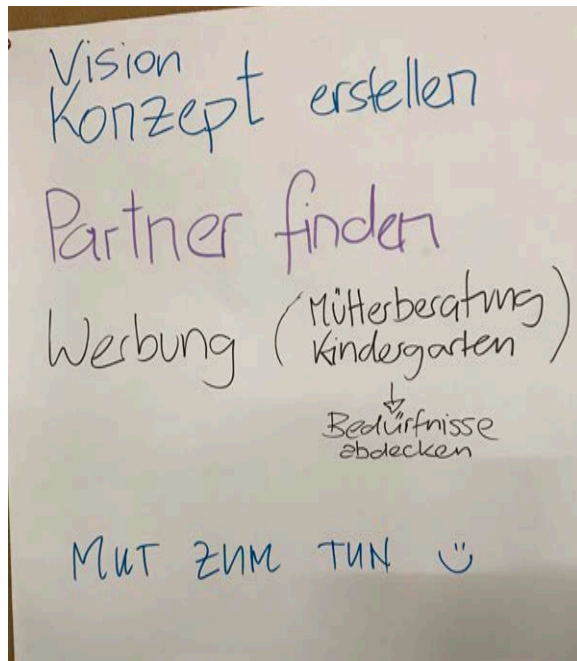 Vision
Konzept erstellen
Partner finden
Werbung (Mütterberatung
Kindergarten)
↓
Bedürfnisse
abdecken
MUT ZUM TUN ☺